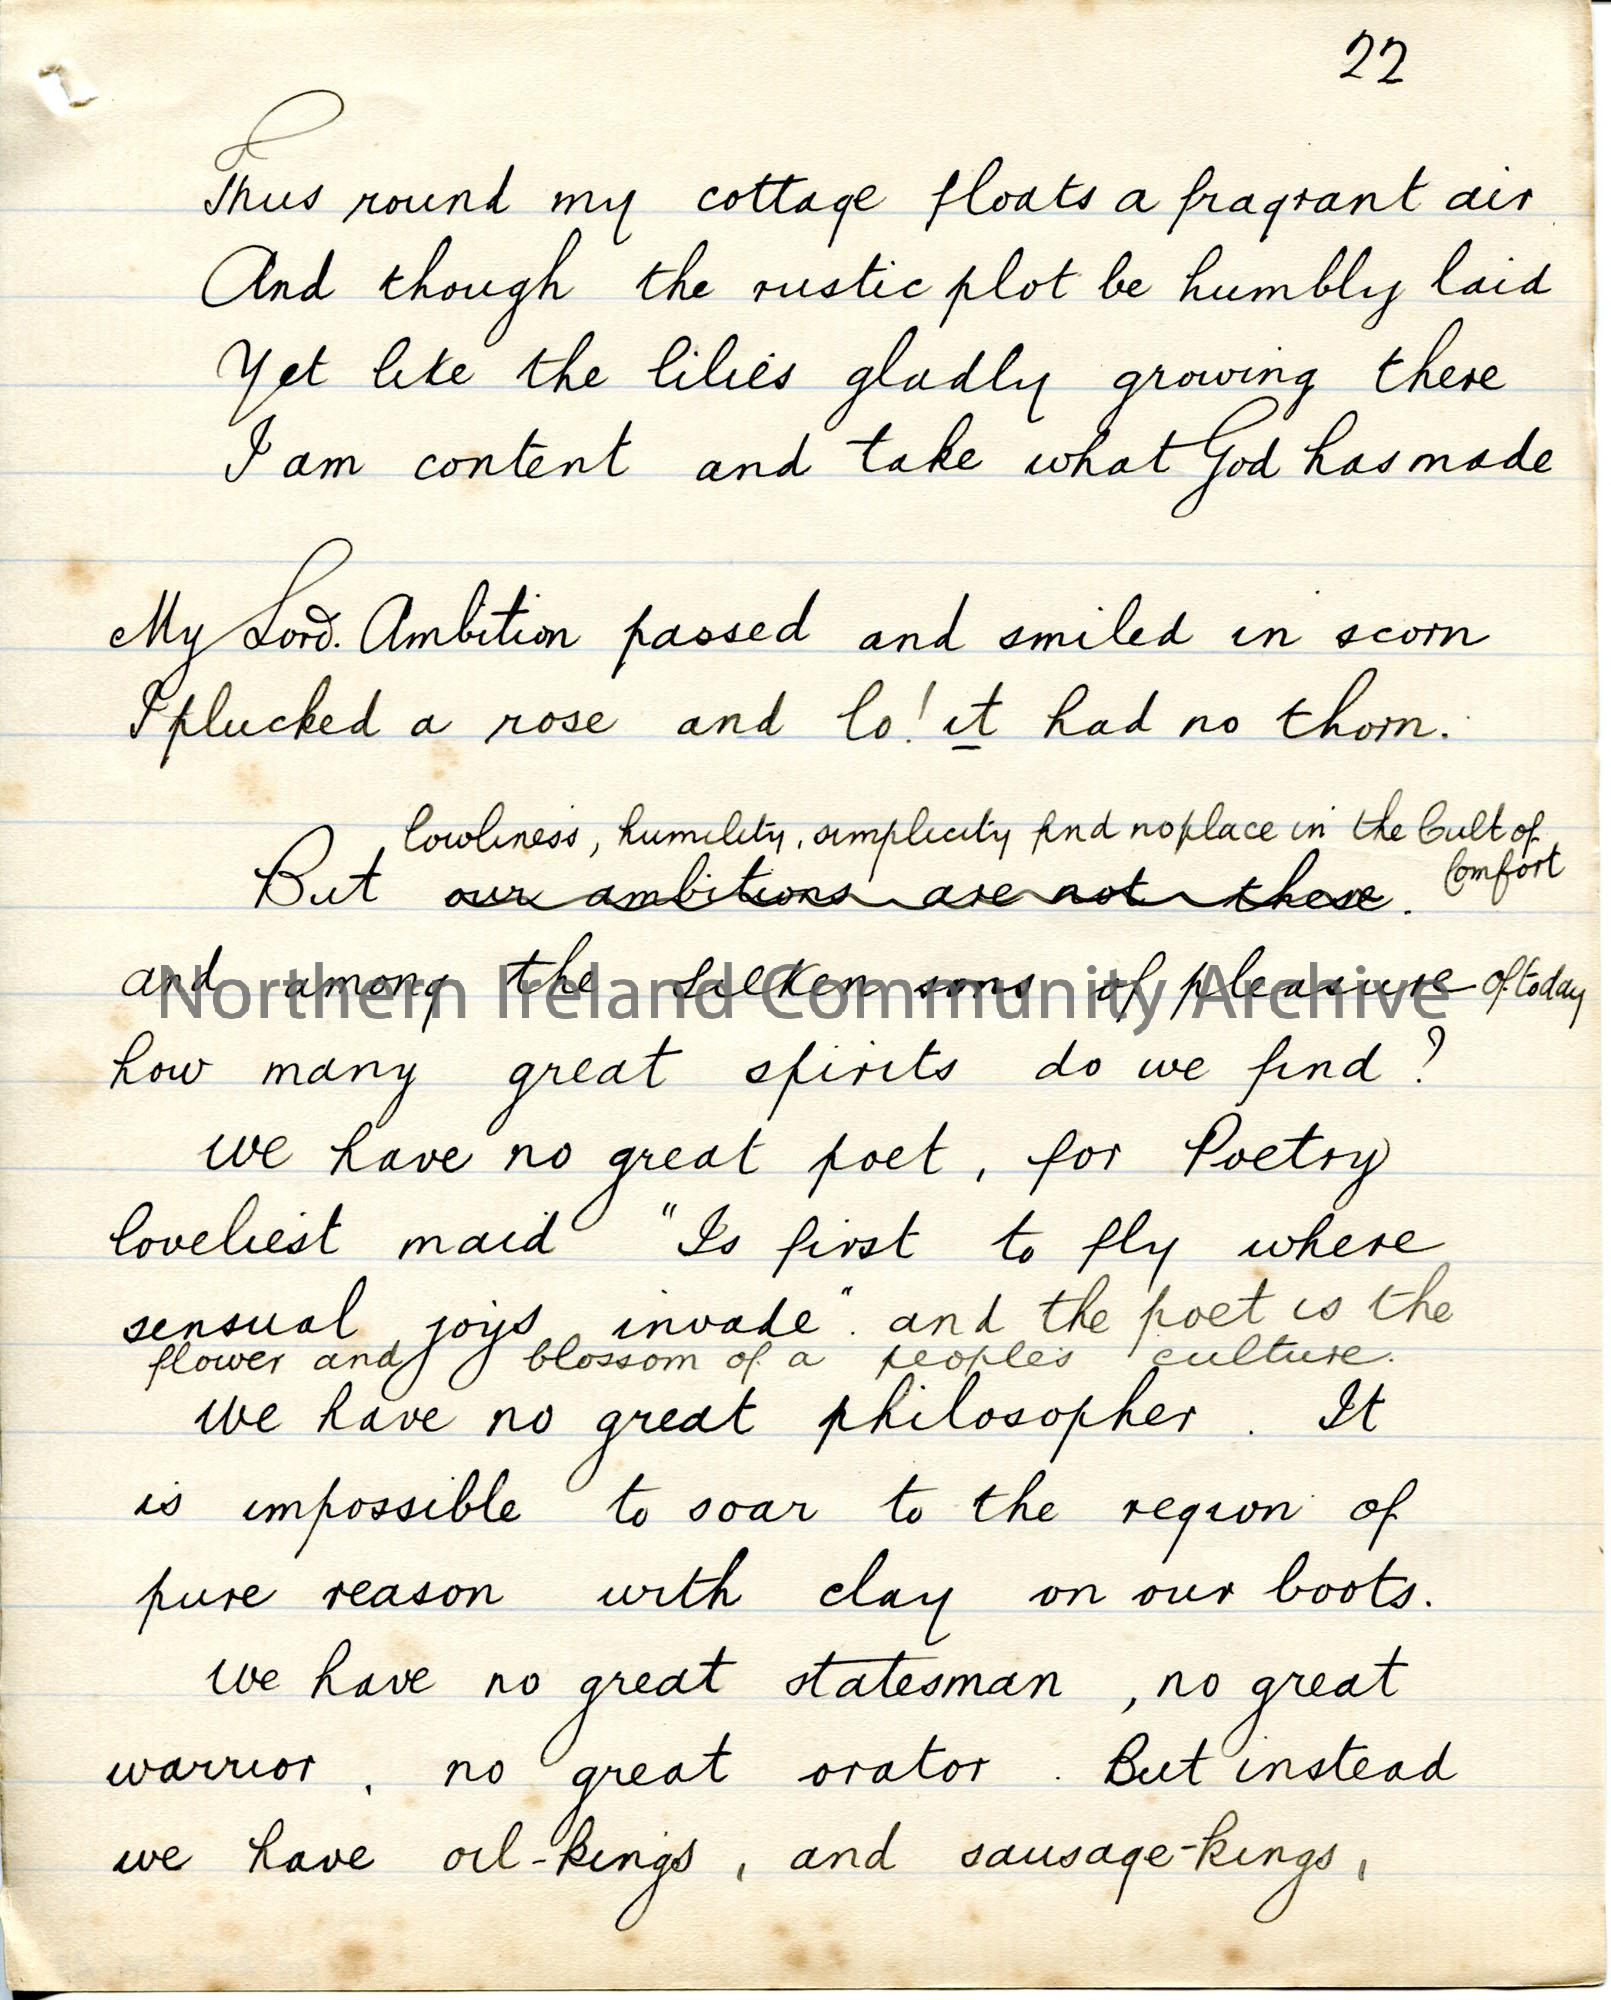 22
Thus round my cottage floats a fragrant air
And though the rustic plot be humbly laid
Yet like the lilies gladly growing there
I am content and take what God has made
My Lord. Ambition passed and smiled in scorn
I plucked a rose and lo! it had no thorn.
lowliness, humility, simplicity find no place in the Cult of
Comfort
But our ambitions are not these.
and among the silken sons of pleasure of today
Northern Ireland Community Archive
how many great spirits do we find?
We have no great poet, for Poetry
loveliest maid "Is first to fly where
sensual joys invade". and the poet is the
flower and blossom of a peoples culture.
We have no great philosopher. It
is impossible to soar to the region of
pure reason with clay on our boots.
We have no great statesman, no great
warrior, no great orator. But instead
we have oil-kings, and sausage-kings,